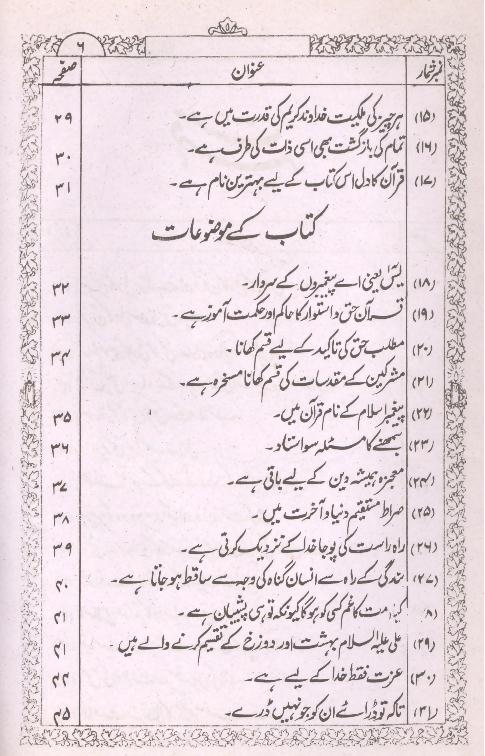 ۶
نمبر شمار عنوان صفحہ
(۱۵) ہر چیز کی ملکیت خداوند کریم کی قدرت میں ہے۔ ۲۹
(۱۶) تمام کی بازگشت بھی اسی ذات کی طرف ہے۔ ۳۰
(۱۷) قرآن کا دل اس کتاب کے لیے بہترین نام ہے۔ ۳۱
کتاب کے موضوعات
(۱۸) یٰسٓ یعنی اے پیغمبروں کے سردار۔ ۳۲
(۱۹) قرآن حق و استوار کا حاکم اور حکمت آموز ہے۔ ۳۳
(۲۰) مطلب حق کی تاکید کے لیے قسم کھانا۔ ۳۴
(۲۱) مشرکین کے مقدسات کی قسم کھانا مسخرہ ہے۔
(۲۲) پیغمبر اسلام کے نام قرآن میں۔ ۳۵
(۲۳) سمجھنے کا مسئلہ سو استاد۔ ۳۶
(۲۴) معجزہ ہمیشہ دین کے لیے باقی ہے۔ ۳۷
(۲۵) صراط مستقیم دنیا و آخرت میں۔ ۳۸
(۲۶) راہ راست کی پوجا خدا کے نزدیک کرتی ہے۔ ۳۹
(۲۷) بندگی کے راہ سے انسان گناہ کی وجہ سے ساقط ہو جاتا ہے۔ ۴۰
کا غم کسی کو ہوگا کیونکہ تو ہی پشتیبان ہے۔ ۴۱
(۲۹) علی علیہ السلام بہشت اور دوزخ کے تقسیم کرنے والے ہیں۔ ۴۱
(۳۰) عزت فقط خدا کے لیے ہے۔ ۴۴
(۳۱) تاکہ تو ڈرائے ان کو جو نہیں ڈرے۔ ۴۵